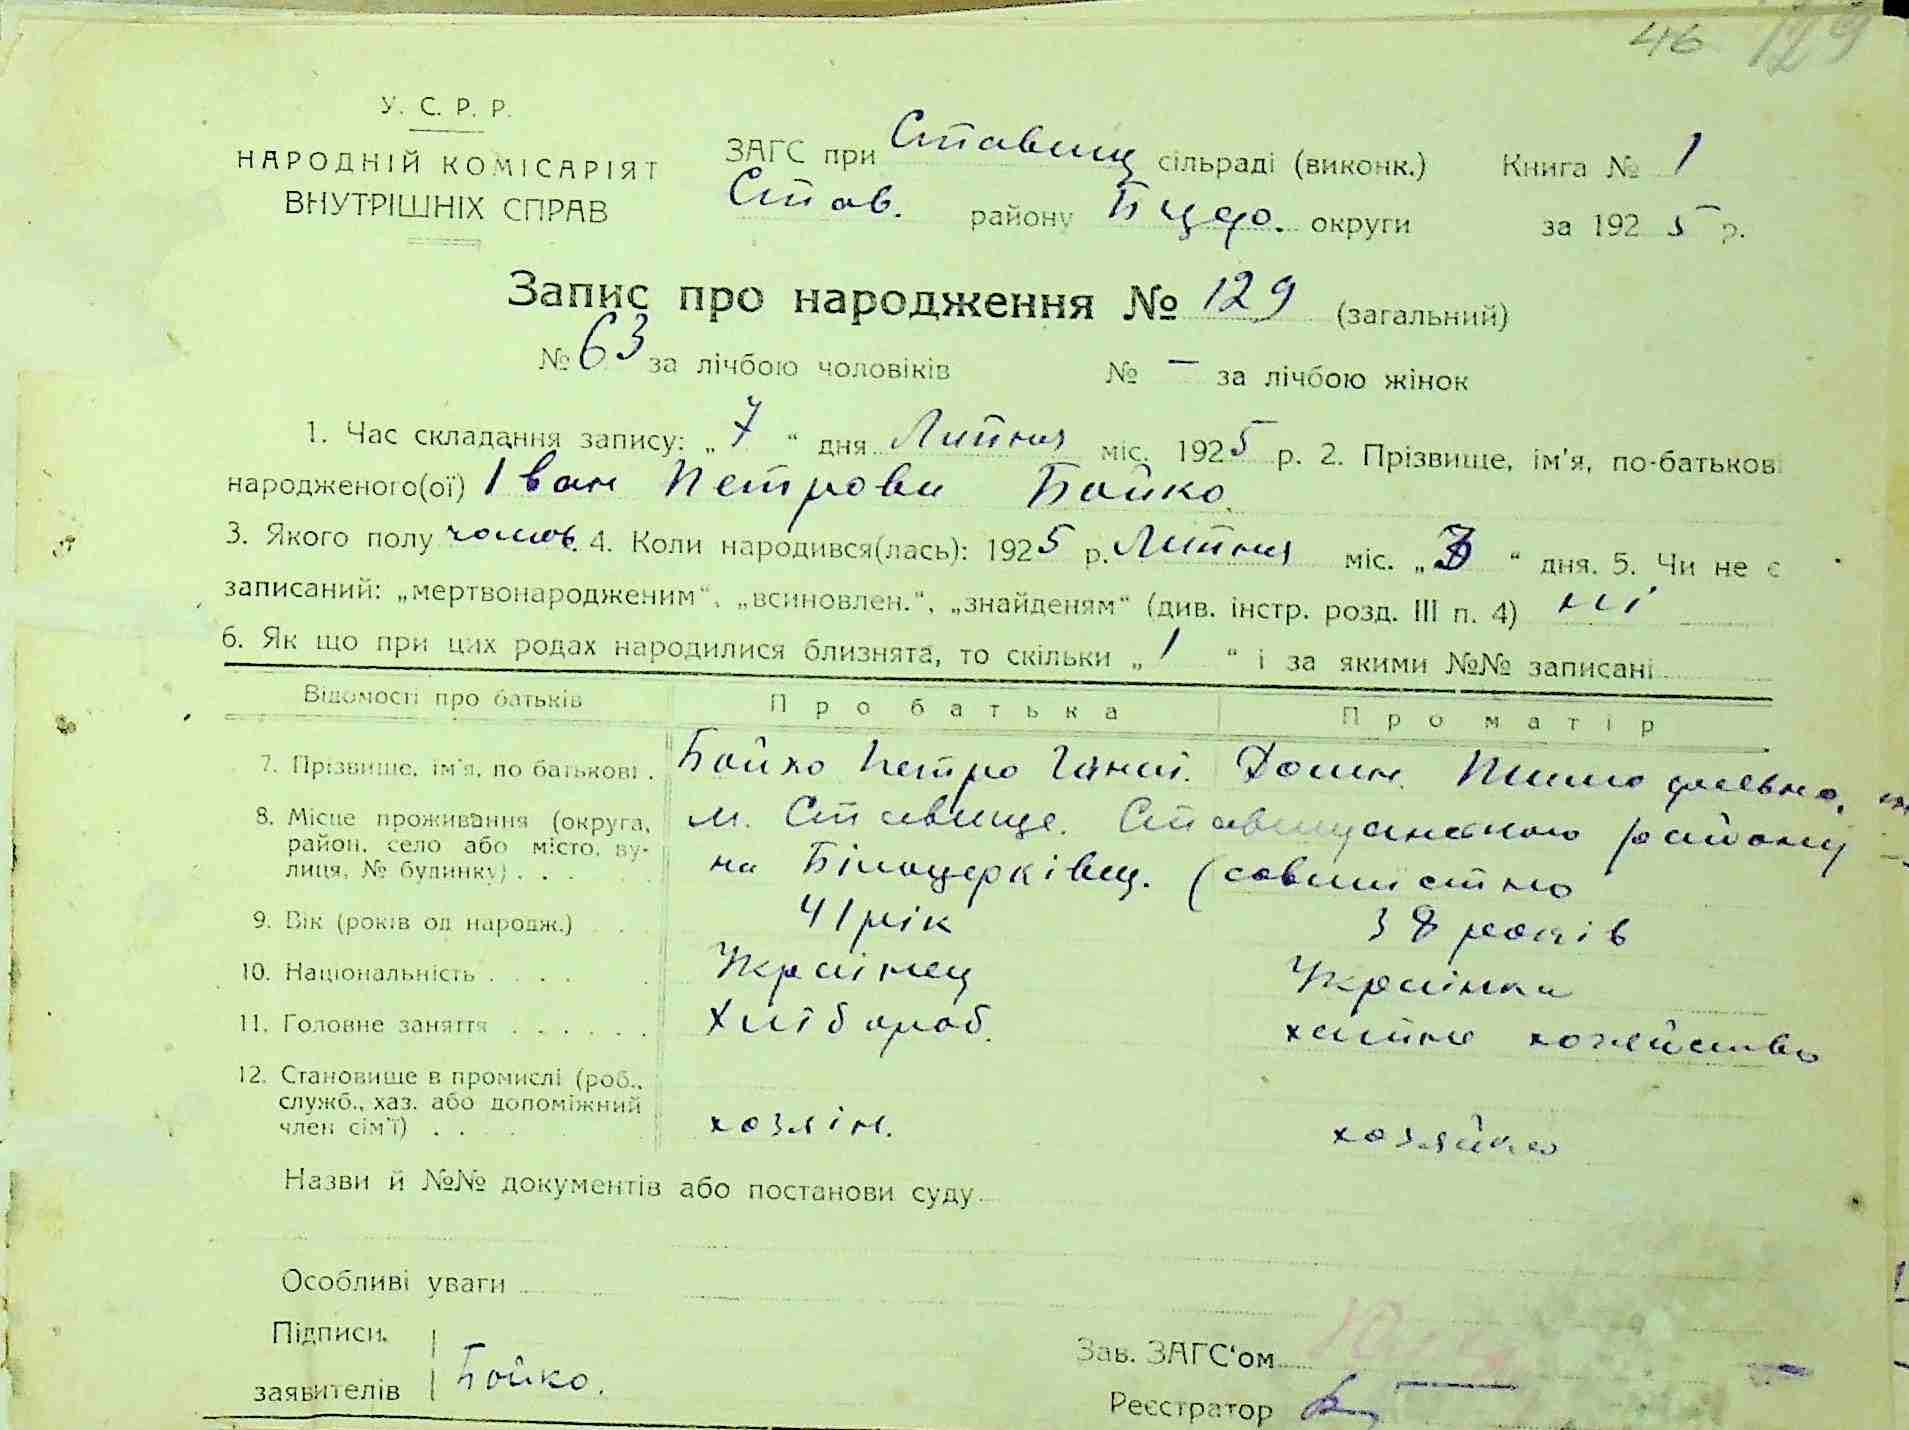 46 129
У. С. Р. Р.
НАРОДНІЙ КОМІСАРІЯТ
ВНУТРІШНІХ СПРАВ
ЗАГС при Ставищ сільраді (виконк.) Книга № 1
Став. району Б Церк. округи за 1925 р.
Запис про народження № 129 (загальний)
№ 63 за лічбою чоловіків № – за лічбою жінок
1. Час складання запису: „7“ дня Липня міс. 1925 р. 2. Прізвище, ім'я, по-батькові
народженого(ої) Іван Петрови Бойко
3. Якого полу чолов. 4. Коли народився(лась): 1925 р. Липня міс. „ “ дня. 5. Чи не є
записаний: „мертвонародженим“, „всиновлен.“, „знайденям“ (див. інстр. розд. III п. 4) ні
6. Як що при цих родах народилися близнята, то скільки „1“ і за якими №№ записані
Відомості про батьків Про батька Про матір
7. Прізвище, ім'я, по батькові . Бойко Петро
8. Місце проживання (округа, район, село або місто, вулиця, № будинку) . . . м. Ставище. Ставищанського району
на Білоцерківщ. (совмистно
9. Вік (років од народж.) . . 41 рік 38 років
10. Національність . . . . Українец Українка
11. Головне заняття . . . . . . Хлібороб. хатне хозяйство
12. Становище в промислі (роб., служб., хаз. або допоміжний член сім'ї) . . хозяін. хозяйка
Назви й №№ документів або постанови суду
Особливі уваги
Підписи
заявителів Бойко.
Зав. ЗАГС‘ом
Реєстратор